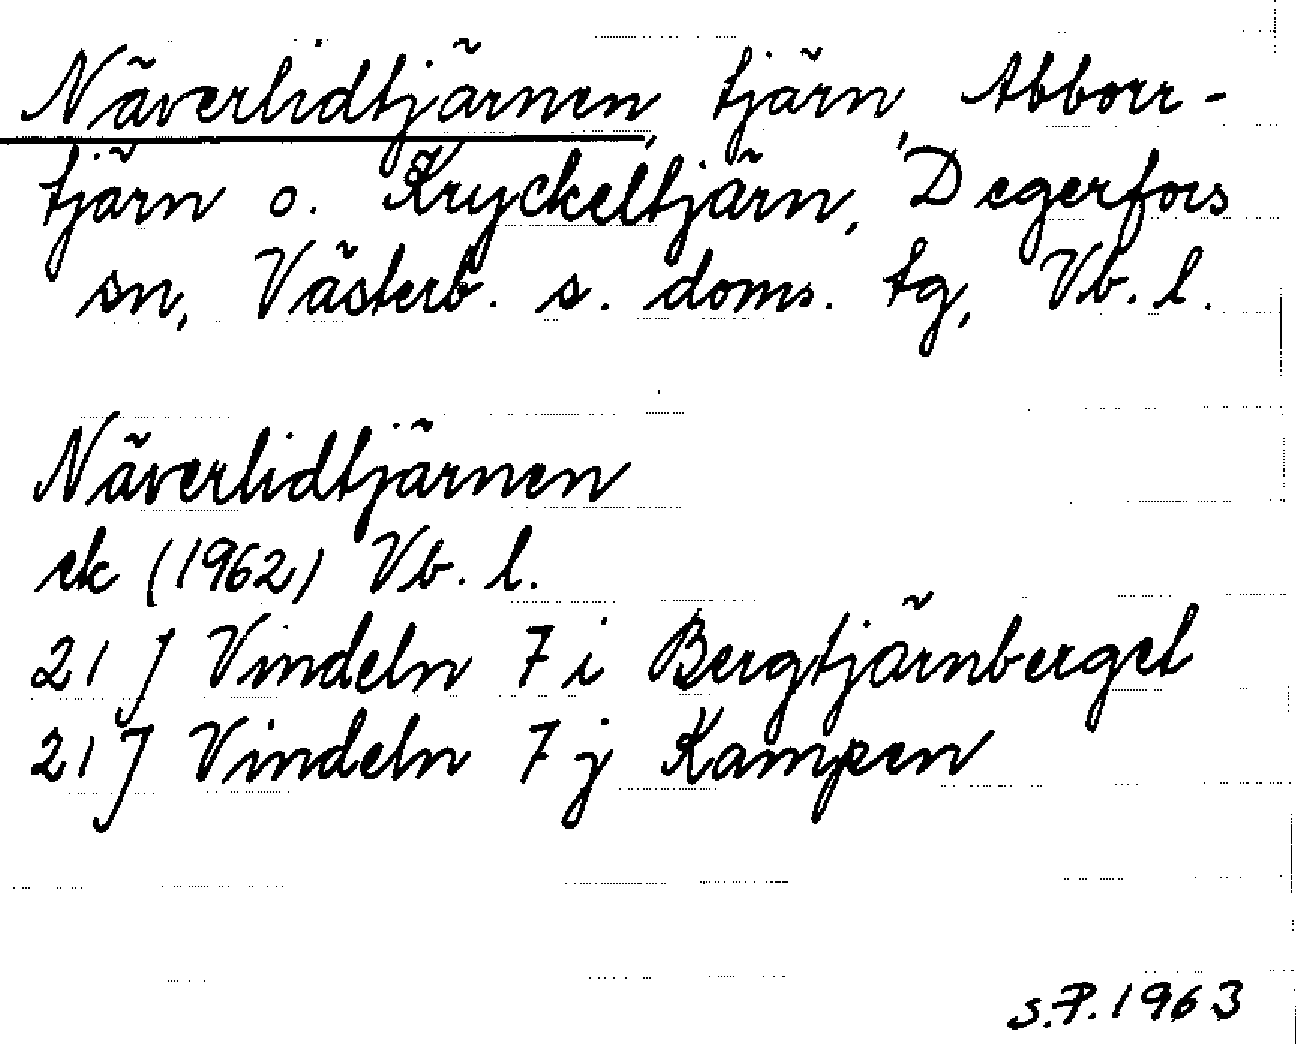 Näverlidtjärnen, tjärn, Abborr-
tjärn o. Kryckeltjärn, Degerfors
sn, Västerb. s. doms. tg, Vb. l.
Näverlidtjärnen
ek (1962) Vb. l.
21 J Vindeln 7 i Bergtjärnberget
21 J Vindeln 7 j Kampen
S.P. 1963